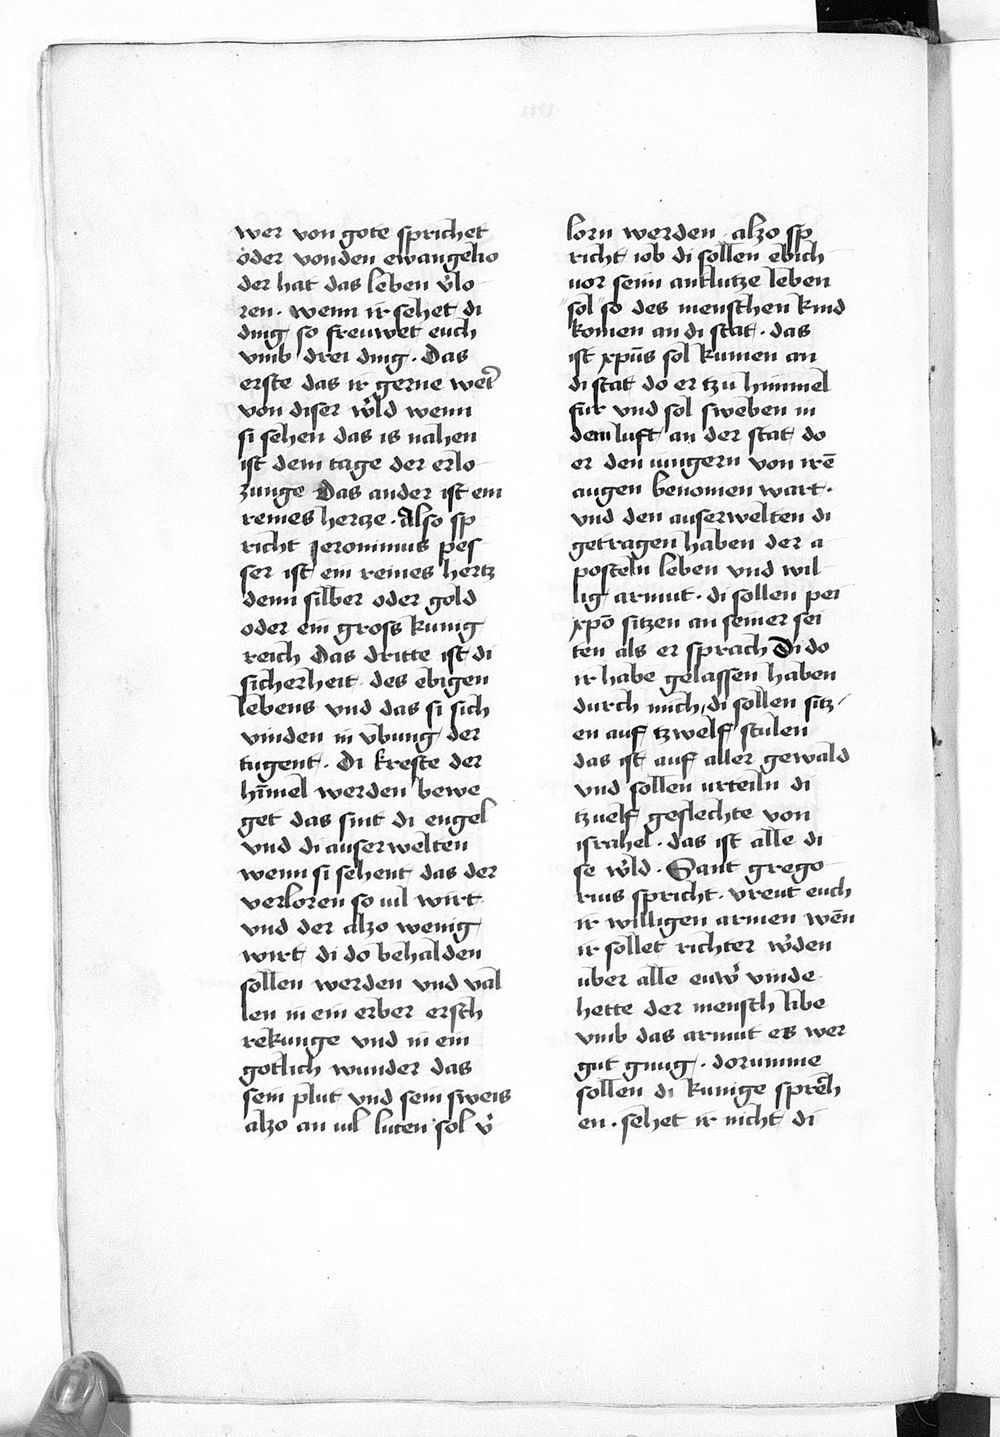 wer von gote sprichet
oder von den ewangelio
der hat das leben v̓lo
ren · wenn ir sehet di
ding so freuwet euch
vmb drei ding · Das
erste das ir gerne wert̓
von diser w̓ld wenn
si sehen das is nahen
ist dem tage der erlo
zunge Das ander ist ein
reines hertze · Also sp
richt Jeronimus pes
ser ist ein reines hertz
denn silber oder gold
oder ein gross kunig
reich Das dritte ist di
sicherheit des ebigen
lebens vnd das si sich
vinden in vbung der
tugent · Di krefte der
hīmel werden bewe
get das sint di engel
vnd di auserwelten
wenn si sehent das der
verloren so uil wirt
vnd der alzo wenig
wirt di do behalden
sollen werden vnd val
len in ein erber ersch
rekunge vnd in ein
gotlich wunder das
sein plut vnd sein sweis
alzo an uil luten sol v̓
lorn werden · alzo sp
richt iob di sollen ebich
uor seim antlutze leben
sol so des menschen kind
komen an di stat · das
ist xpūs sol kumen an
di stat do er tzu himmel
fur vnd sol sweben in
dem luft an der stat do
er den iungern von irē
augen benomen wart ·
vnd den auserwelten di
getragen haben der a
posteln leben vnd wil
lig armut · di sollen pei
xpō sitzen an seiner sei
ten als er sprach Di do
ir habe gelassen haben
durch mich di sollen sitz
en auf tzwelf stulen
das ist auf aller gewald
vnd sollen urteiln di
tzuelf geslechte von
israhel · das ist alle di
se w̓ld · Sant grego
rius spricht · vreut euch
ir willigen armen wēn
ir sollet richter w̓den
uber alle euw̓ vinde
hette der mensch libe
vmb das armut es wer
gut gnug · dorumme
sollen di kunige sprec̓h
en · sehet ir nicht di